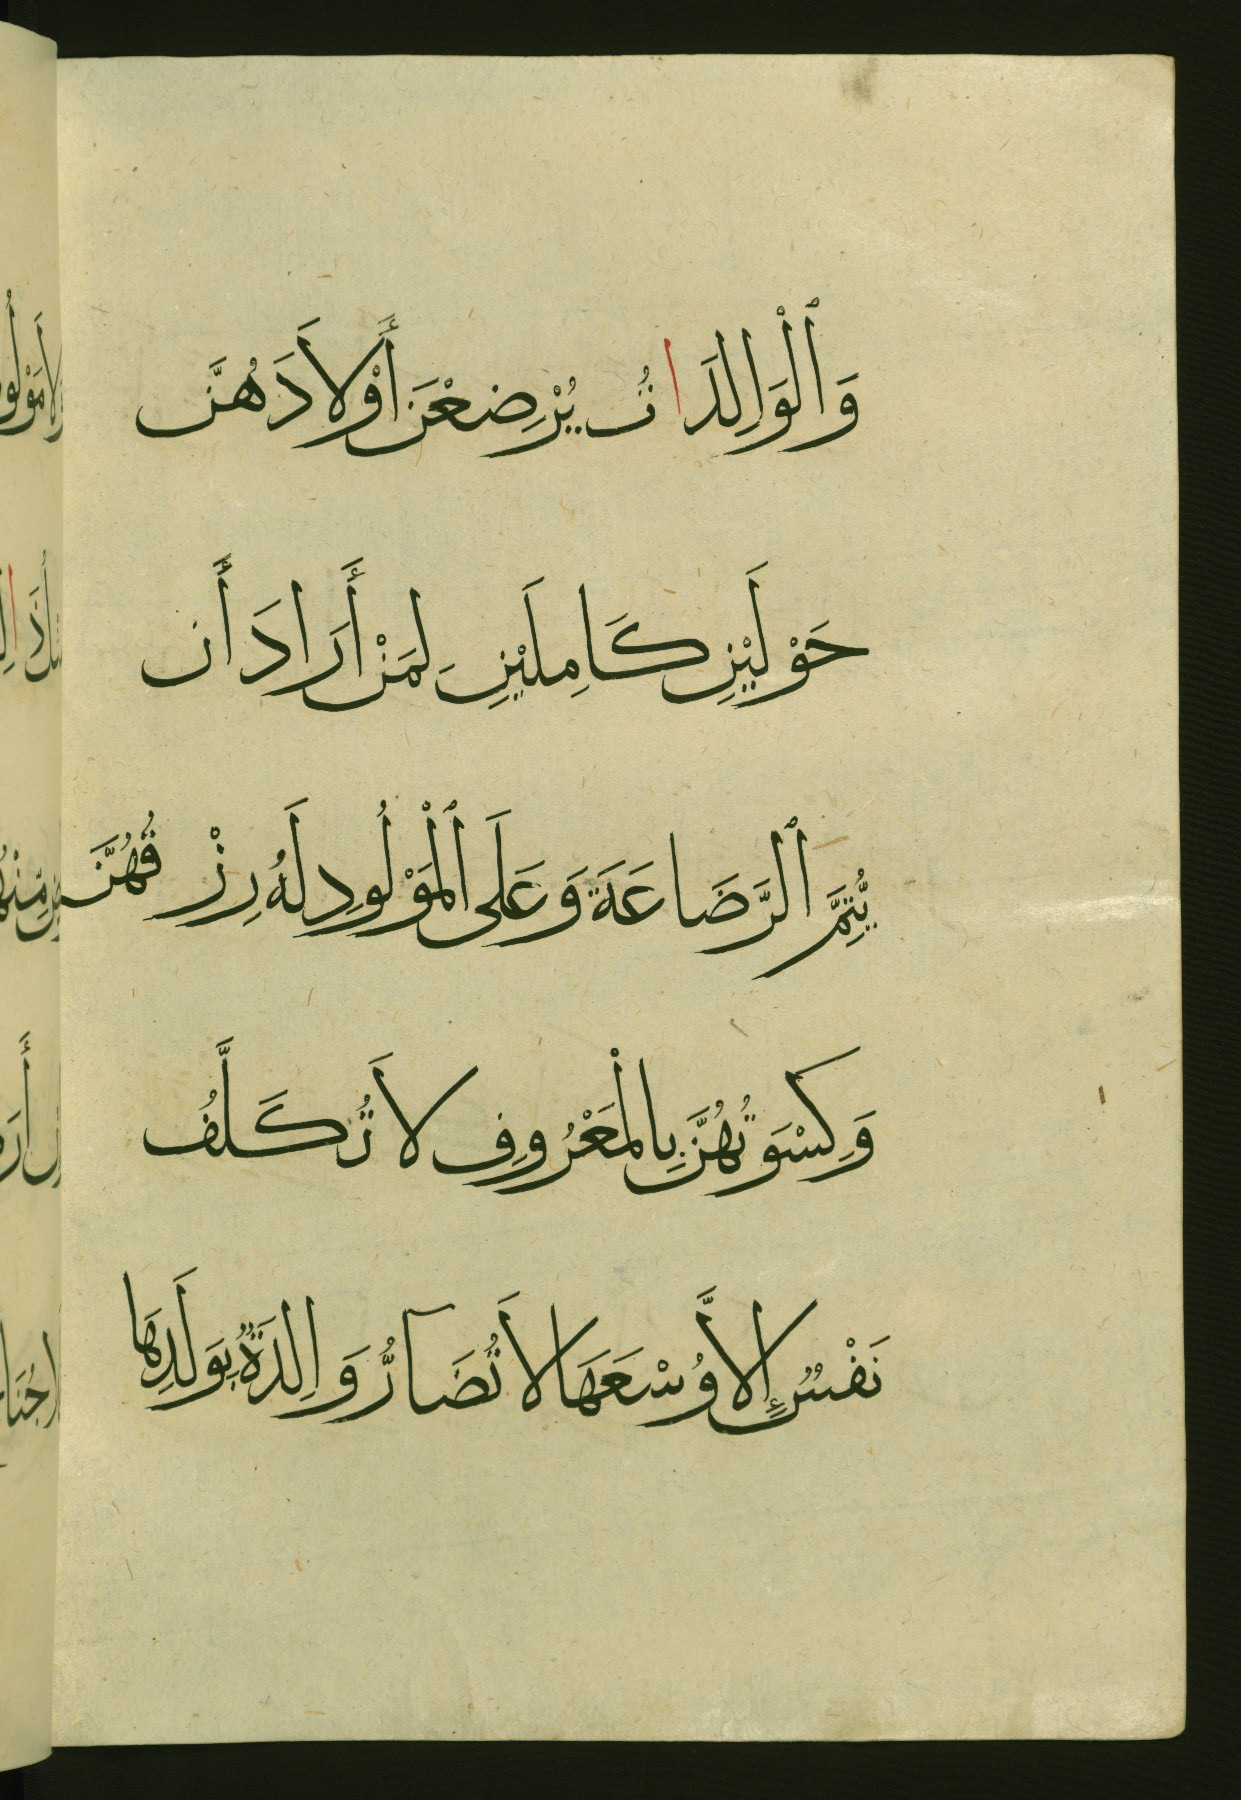 وَٱلْوَالِدَاتُ يُرْضِعْنَ أَوْلَادَهُنَّ
حَوْلَيْنِ كَامِلَيْنِ لِمَنْ أَرَادَ أَن
يُتِمَّ ٱلرَّضَاعَةَ وَعَلَى ٱلْمَوْلُودِ لَهُ رِزْقُهُنَّ
وَكِسْوَتُهُنَّ بِالْمَعْرُوفِ لَا تُكَلَّفُ
نَفْسٌ إِلَّا وُسْعَهَا لَا تُضَآرُّ وَالِدَةٌ بِوَلَدِهَا